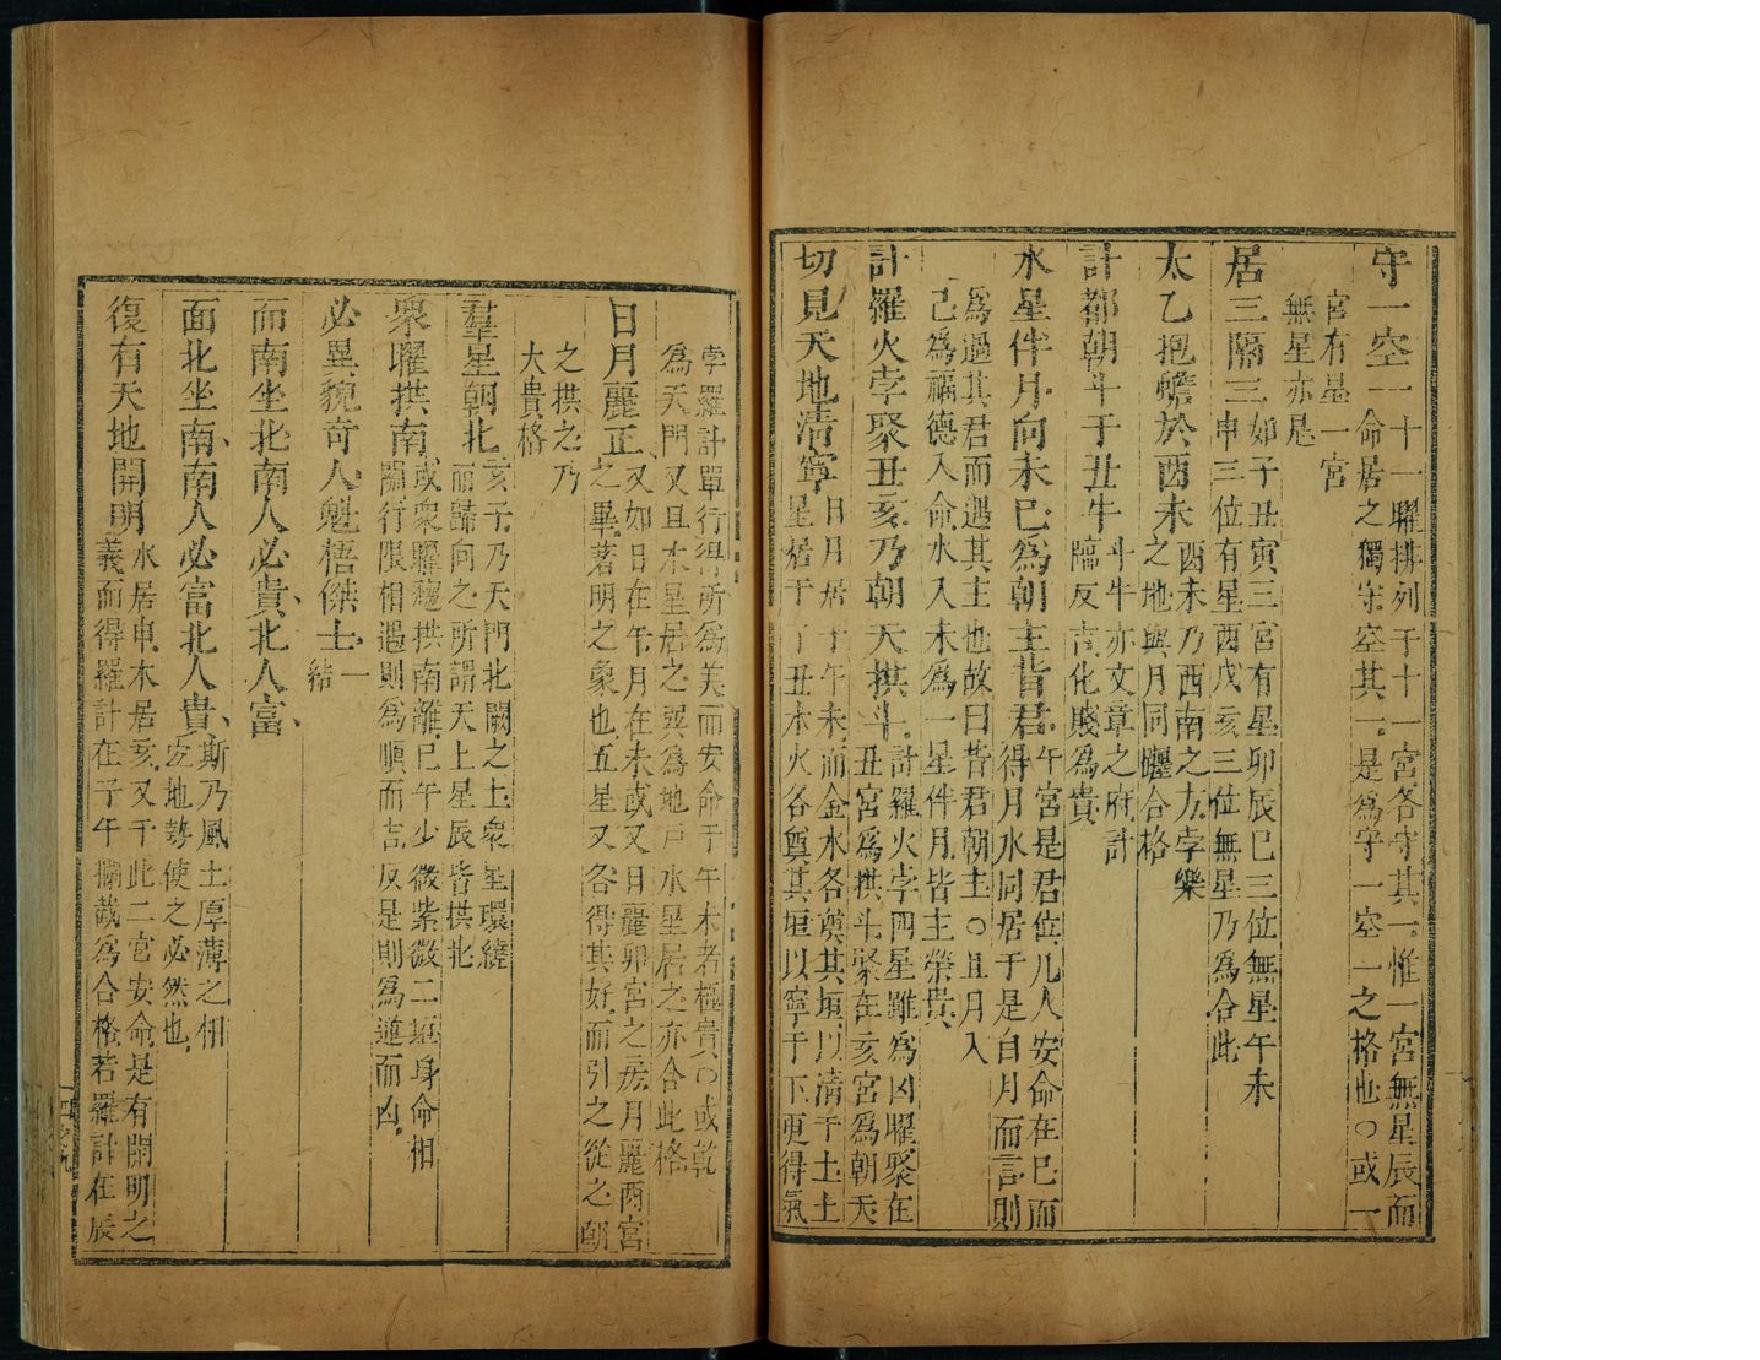 守一空一十一曜排列于十一宮各守其一惟一宮無星辰而
命居之獨守空其一是爲守一空一之格也○或一
宮有星一宮
無星亦是
居三隔三如子丑寅三宮有星卯辰巳三位無星午未
申三位有星酉戌亥三位無星乃爲合此
太乙抱蟾於酉未酉未乃西南之方孛樂
之地與月同躔合格
計都朝斗于丑牛斗牛亦文章之府計
臨反吉化賤爲貴
水星伴月向未巳爲朝主皆君午宮是君位凡人安命在巳而
得月水同居于是自月而言則
爲過其君而遇其主也故曰皆君朝主○且月入
己爲福德入命水入未爲一星伴月皆主榮貴
計羅火孛聚丑亥乃朝天拱斗計羅火孛四星雖爲凶曜聚在
丑宮爲拱斗聚在亥宮爲朝天
切見天地清寧日月居于午未而金水各奠其垣以清于上土
星居于子丑木火各奠其垣以寧于下更得氣
孛羅計單行得所爲美而安命于午未者極貴○或乾
爲天門又且木星居之巽爲地戶水星居之亦合此格
日月麗正又如日在午月在未或又日麗卯宮之房月麗酉宮
之畢著明之象也五星又各得其好而引之從之朝
之拱之乃
大貴格
羣星朝北亥子乃天門北闕之上衆星環繞
而歸向之所謂天上星辰皆拱北
衆曜拱南或衆曜遶拱南離巳午少微紫微二垣身命相
關行限相遇則爲順而吉反是則爲逆而凶
必異貌奇人魁梧傑士一
結
而南坐北南人必貴北人富
面北坐南南人必富北人貴斯乃風土厚薄之相
定地勢使之必然也
復有天地開明水居申木居亥又于此二宮安命是有開明之
義而得羅計在子午攔截爲合格若羅計在辰